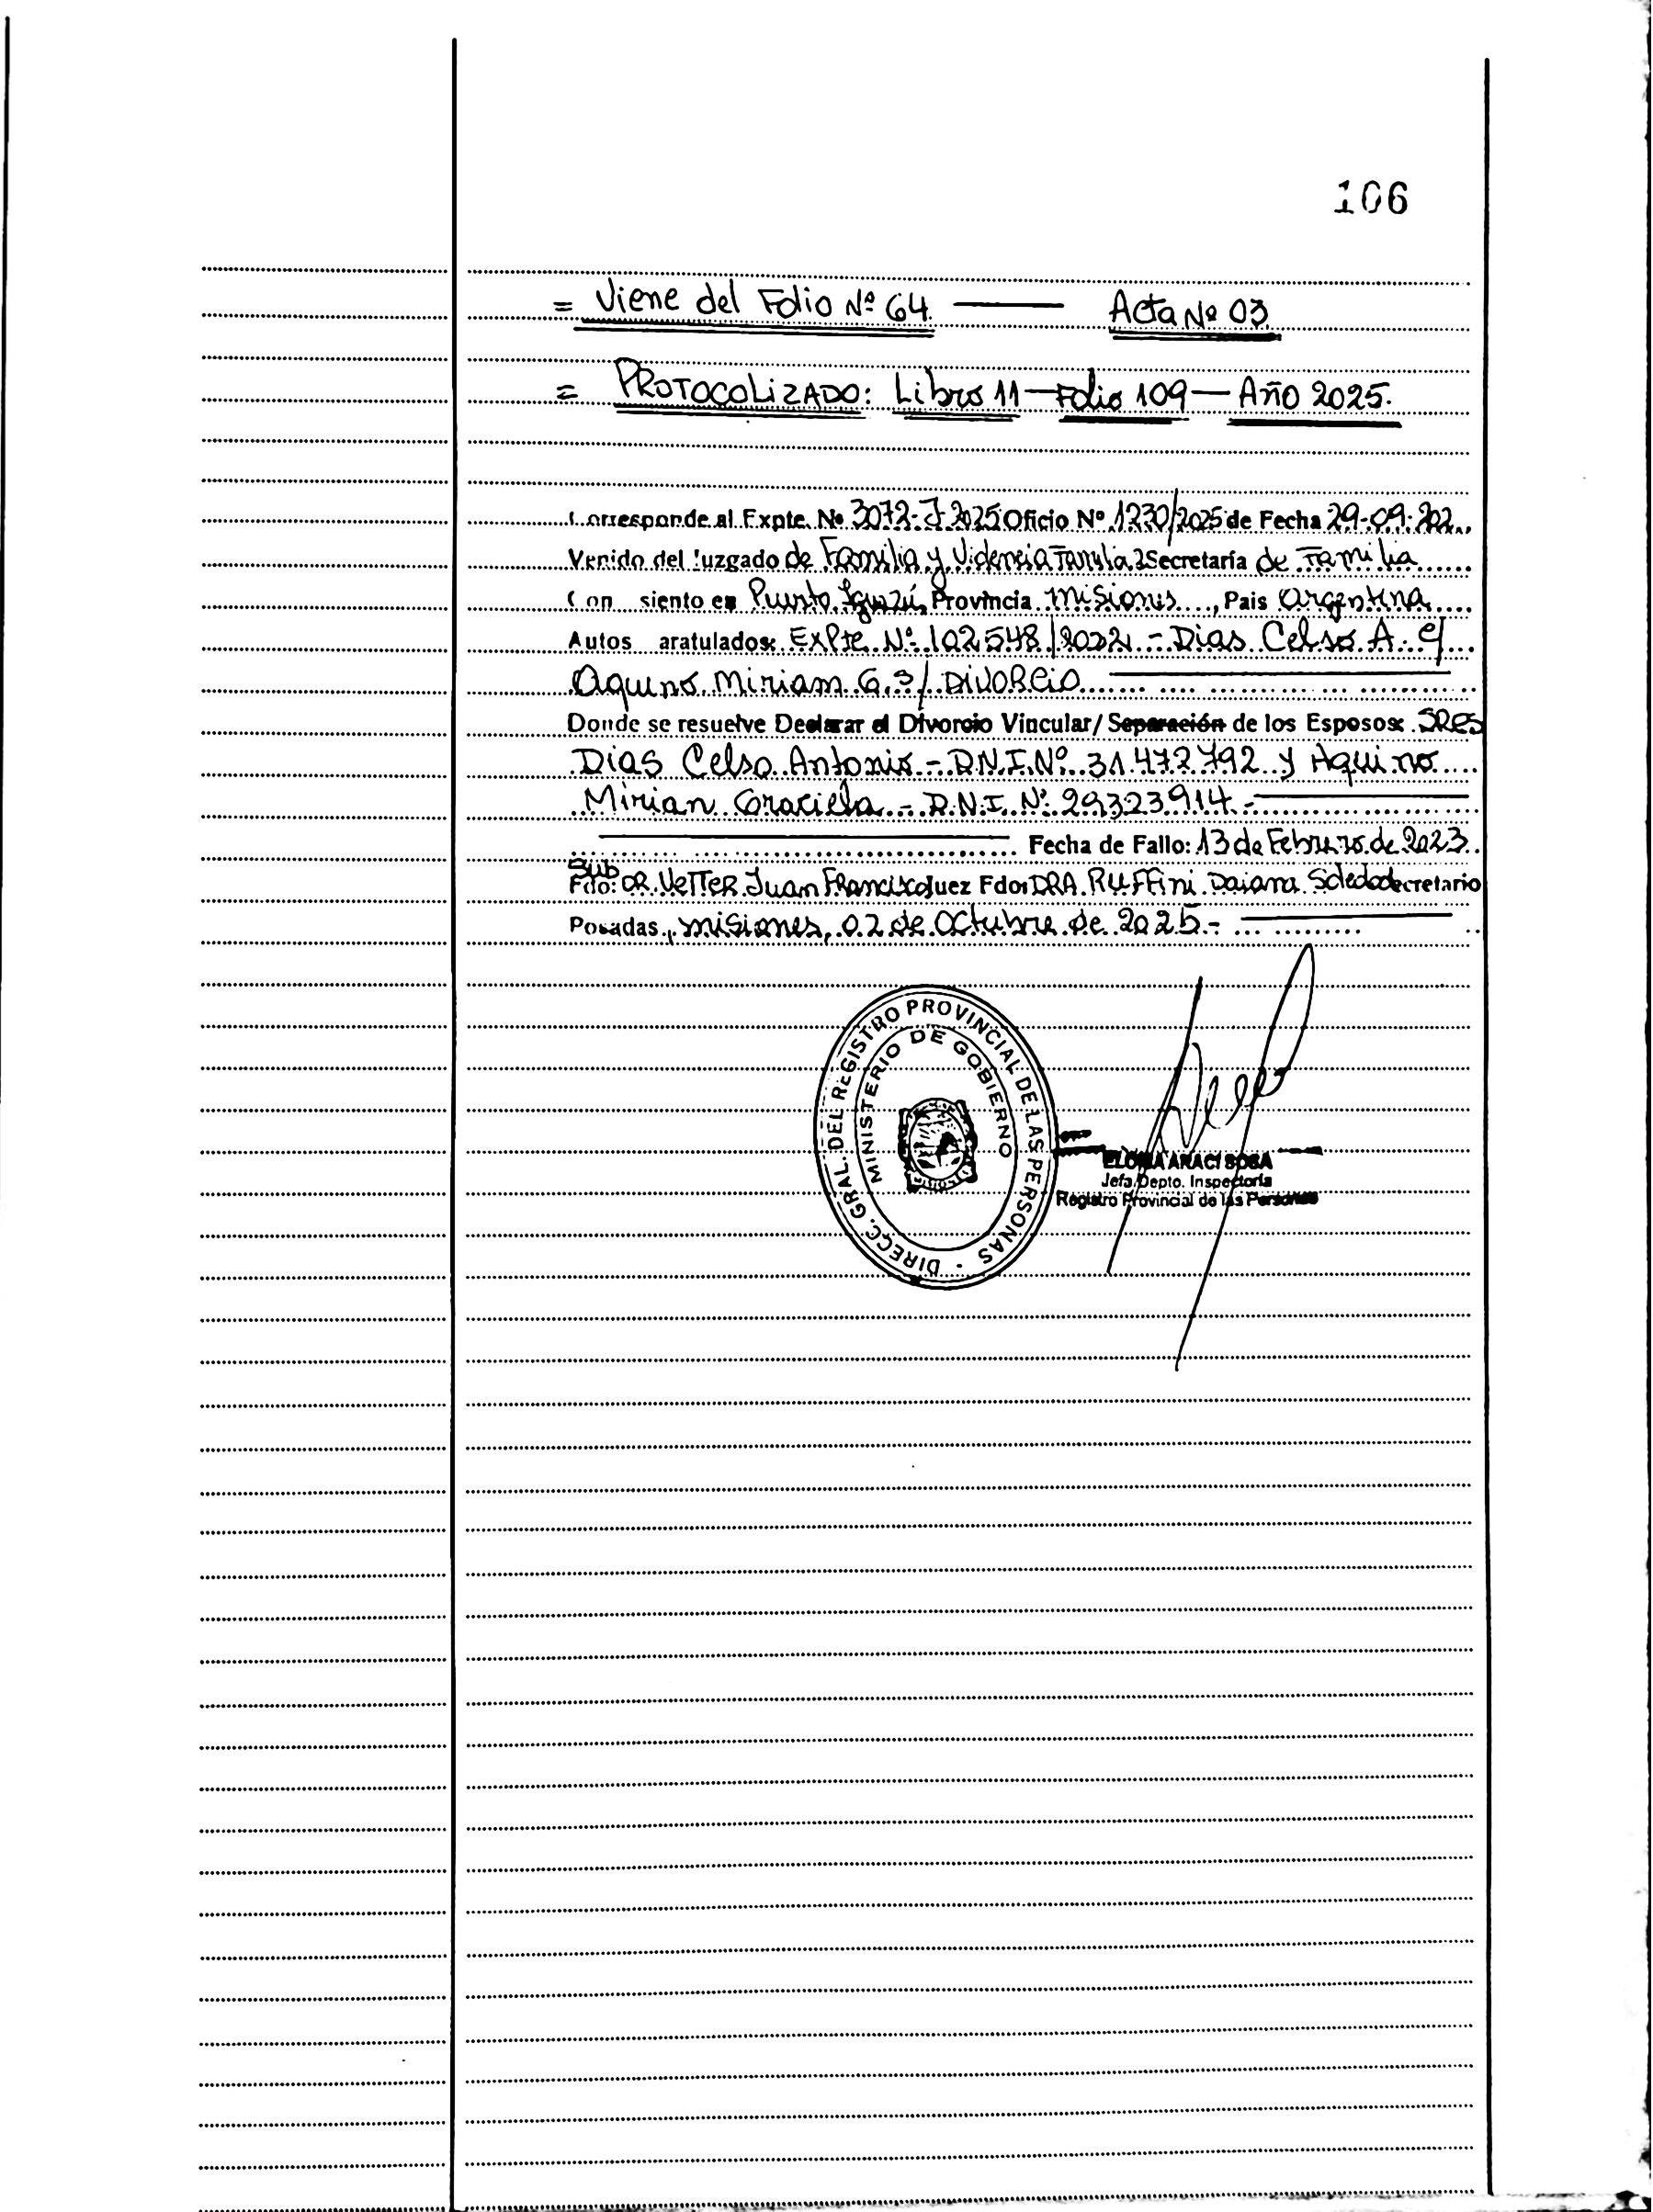 106
= Viene del Folio Nº 64. — Acta Nº 03.
= PROTOCOLIZADO: Libro 11 — Folio 109 — Año 2025.
Corresponde al Expte. Nº 3072-J-2025 Oficio Nº 1230/2025 de Fecha 29-09-202
Venido del Juzgado de Familia y Violencia Familia 2 Secretaría de Familia
Con siento en Puerto Iguazú, Provincia Misiones, Pais Argentina
Autos aratulados: EXPte. Nº 102548/2022 - Dias Celso A. c/
Aquino Miriam G. s/ DIVORCIO
Donde se resuelve Declarar el Divorcio Vincular/Separación de los Esposos: SRES
Dias Celso Antonio - D.N.I. Nº 31.472.792 y Aquino
Mirian Graciela - D.N.I. Nº 29323914.-
Fecha de Fallo: 13 de Febrero de 2023.
Sub
Fdo: DR. VETTER Juan Francisco Juez Fdo: DRA. RUFFini Daiana Soledad Secretario
Posadas, Misiones, 02 de Octubre de 2025.-
DIRECC. GRAL. DEL REGISTRO PROVINCIAL DE LAS PERSONAS
MINISTERIO DE GOBIERNO
ARACI SOSA
Jefa Depto. Inspectoría
Registro Provincial de las Personas